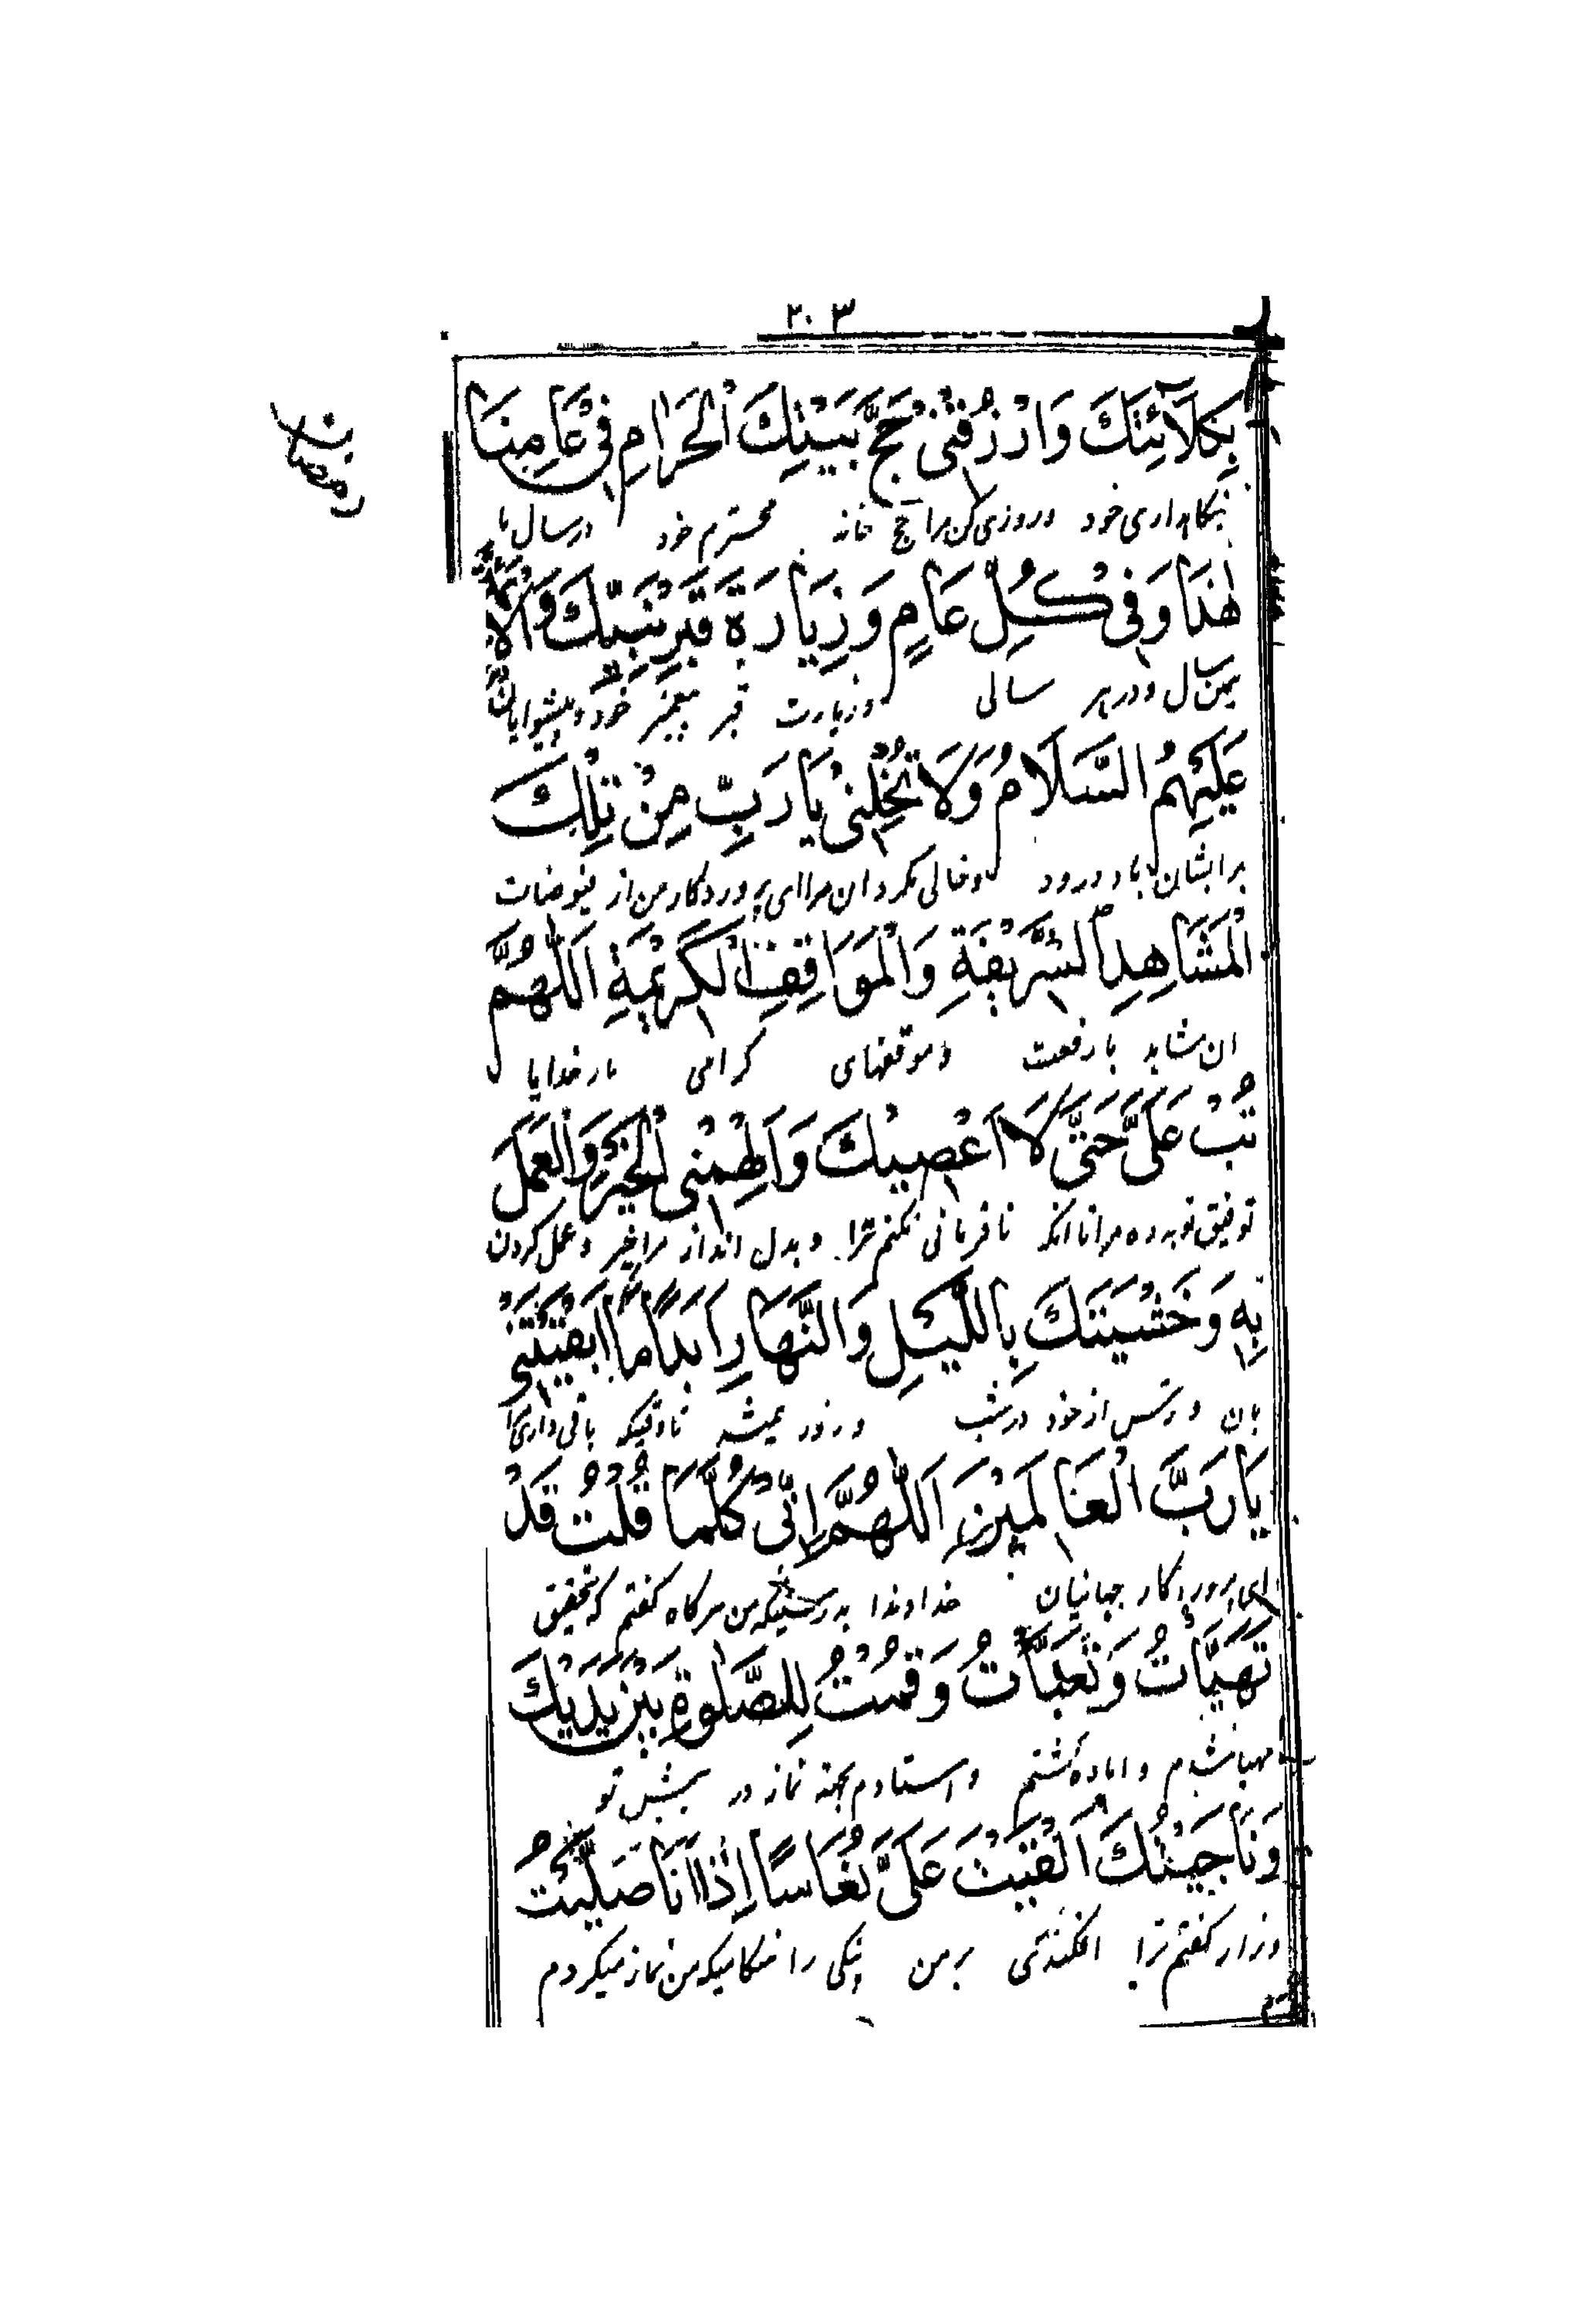 ۲۰۳
رمضان
بِكَلَائَتِكَ وَارْزُقْنِی حَجَّ بَيْتِكَ الْحَرَامِ فِی عَامِنَا
نگاهداری خود وروزی کن مرا حج خانه محترم خود درسال ما
هٰذَا وَفِی كُلِّ عَامٍ وَزِيَارَةَ قَبْرِ نَبِيِّكَ وَالْاَئِمَّةِ
همین سال ودر هر سالی وزیارت قبر پیغمبر خود وپیشوایان
عَلَيْهِمُ السَّلَامُ وَلَا تُخْلِنِی يَا رَبِّ مِنْ تِلْكَ
برایشان باد درود وخالی مگردان مرا ای پروردگار من از فیوضات
الْمَشَاهِدِ الشَّرِيفَةِ وَالْمَوَاقِفِ الْكَرِيمَةِ اَللّٰهُمَّ
ان مشاهد بارفعت وموقفهای گرامی بارخدایا
تُبْ عَلَیَّ حَتّٰی لَا اَعْصِيَكَ وَاَلْهِمْنِی الْخَيْرَ وَالْعَمَلَ
توفیق توبه ده مرا تا انکه نافرمانی نکنم ترا وبدل انداز مرا خیر وعمل کردن
بِهِ وَخَشْيَتَكَ بِاللَّيْلِ وَالنَّهَارِ اَبَدًا مَا اَبْقَيْتَنِی
بان وترس از خود درشب وروز همیشه تاوقتیکه باقی داری مرا
يَا رَبَّ الْعَالَمِينَ اَللّٰهُمَّ اِنِّی كُلَّمَا قُلْتُ قَدْ
ای پروردگار جهانیان خداوندا بدرستیکه من هرگاه گفتم که تحقیق
تَهَيَّاْتُ وَتَعَبَّاْتُ وَقُمْتُ لِلصَّلٰوةِ بَيْنَ يَدَيْكَ
مهیا شدم واماده گشتم وایستادم بجهة نماز در پیش تو
وَنَاجَيْتُكَ اَلْقَيْتَ عَلَیَّ نُعَاسًا اِذَا اَنَا صَلَّيْتُ
وراز گفتم ترا افکندی برمن پینکی را هنگامیکه من نماز میکردم